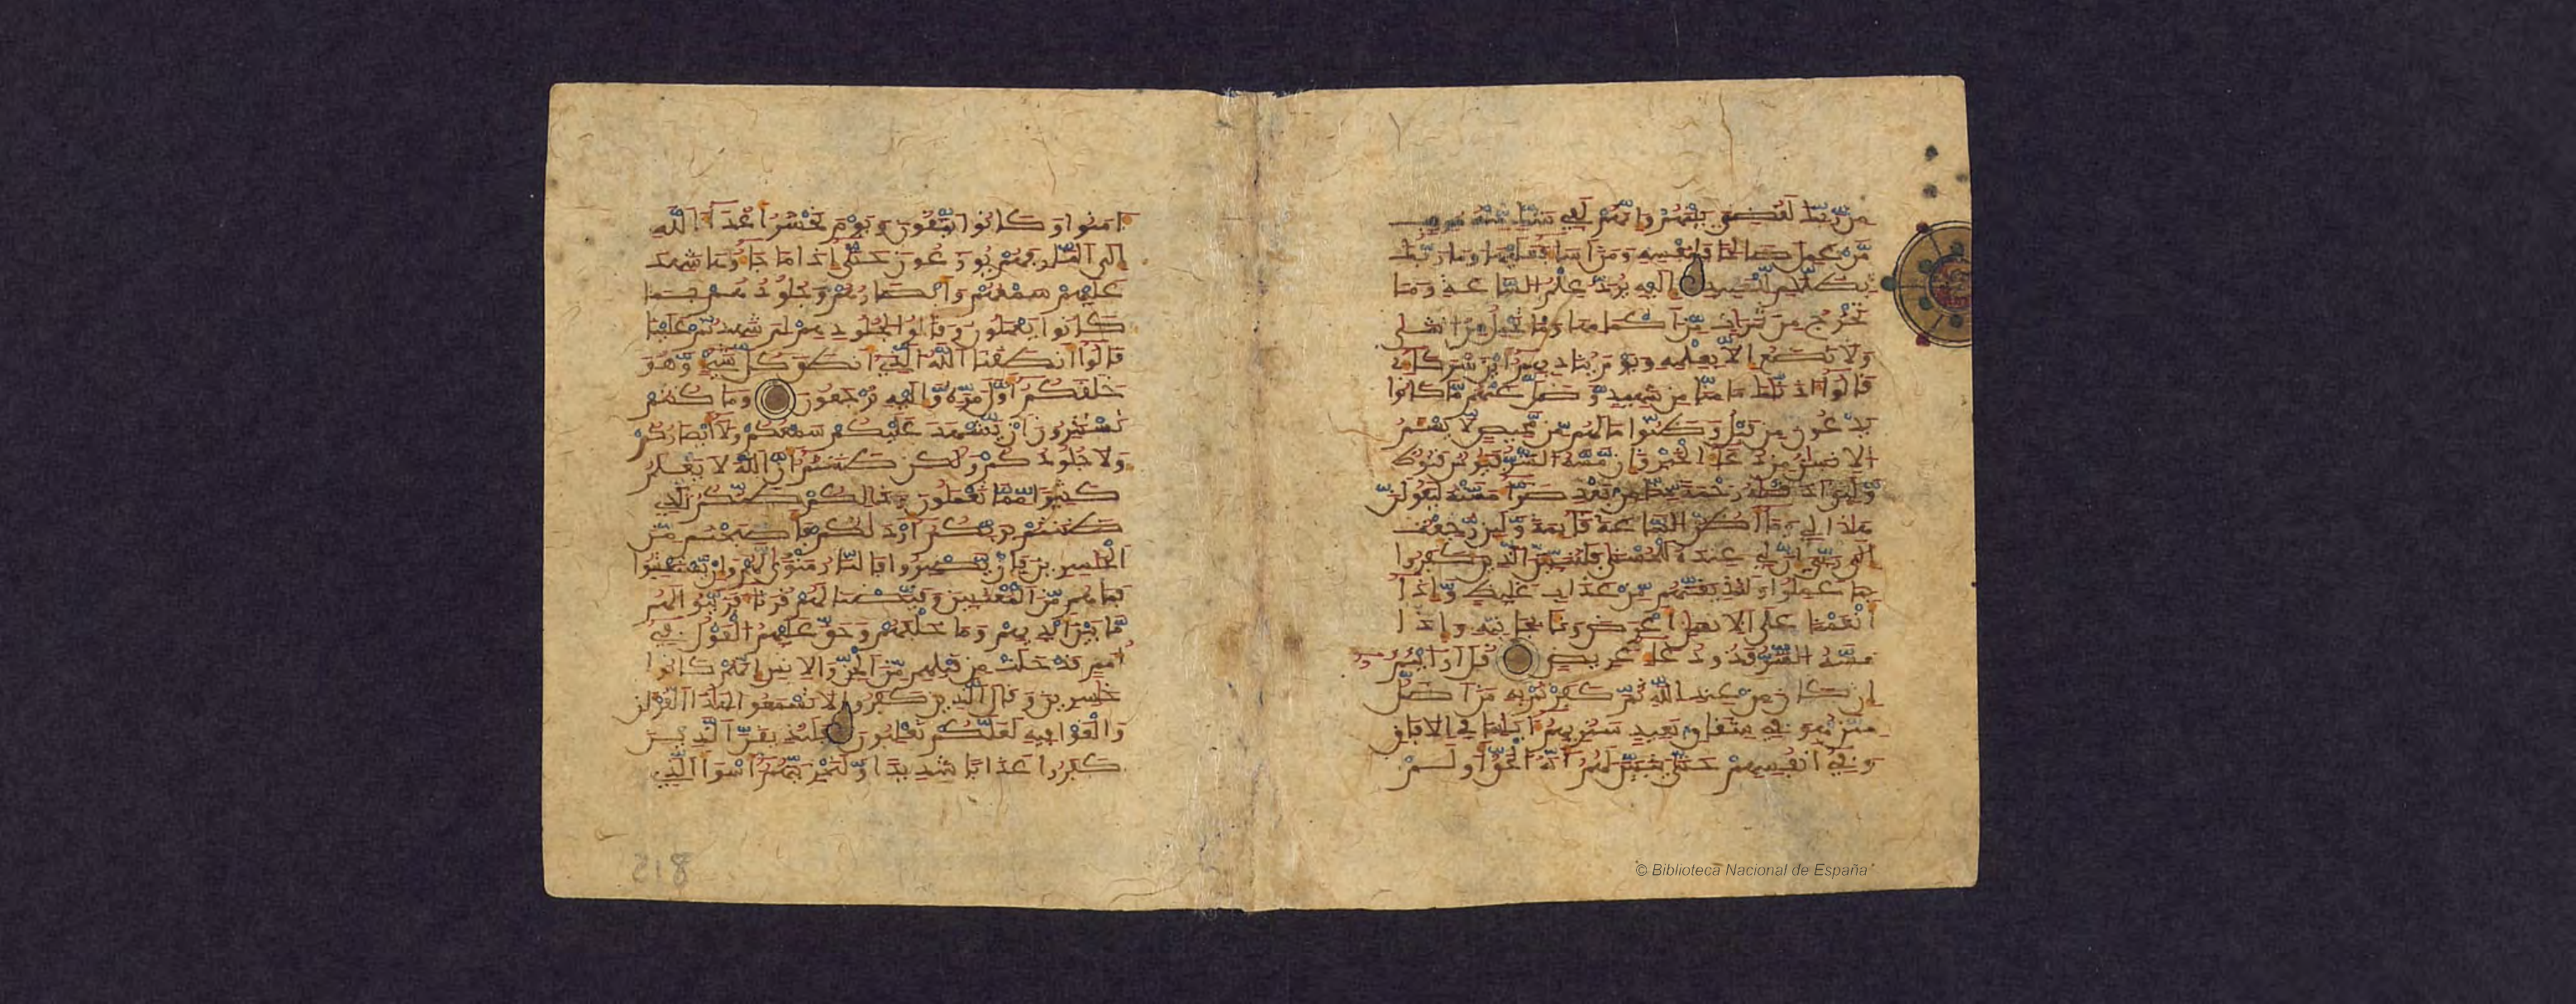 من ربك لقضي بينهم وانهم لفي شك منه مريب
من عمل صلحا فلنفسه ومن اسا فعليها وما ربك
بظلم للعبيد اليه يرد علم الساعة وما
تخرج من ثمرت من اكمامها وما تحمل من انثى
ولا تضع الا بعلمه ويوم يناديهم اين شركاءي
قالوا اذنك ما منا من شهيد وضل عنهم ما كانوا
يدعون من قبل وظنوا ما لهم من محيص لا يسئم
الانسن من دعاء الخير وان مسه الشر فيوس قنوط
ولئن اذقنه رحمة منا من بعد ضراء مسته ليقولن
هذا لي وما اظن الساعة قائمة ولئن رجعت
الى ربي ان لي عنده للحسنى فلننبئن الذين كفروا
بما عملوا ولنذيقنهم من عذاب غليظ واذا
انعمنا على الانسن اعرض ونا بجانبه واذا
مسه الشر فذو دعاء عريض قل ارايتم
ان كان من عند الله ثم كفرتم به من اضل
ممن هو في شقاق بعيد سنريهم ايتنا في الافاق
وفي انفسهم حتى يتبين لهم انه الحق اولم
امنوا وكانوا يتقون ويوم نحشر اعداء الله
الى النار فهم يوزعون حتى اذا ما جاءوها شهد
عليهم سمعهم وابصارهم وجلودهم بما
كانوا يعملون وقالوا لجلودهم لم شهدتم علينا
قالوا انطقنا الله الذي انطق كل شيء وهو
خلقكم اول مرة واليه ترجعون وما كنتم
تستترون ان يشهد عليكم سمعكم ولا ابصاركم
ولا جلودكم ولكن ظننتم ان الله لا يعلم
كثيرا مما تعملون وذالكم ظنكم الذي
ظننتم بربكم ارديكم فاصبحتم من
الخسرين فان يصبروا فالنار مثوى لهم وان يستعتبوا
فما هم من المعتبين وقيضنا لهم قرناء فزينوا لهم
ما بين ايديهم وما خلفهم وحق عليهم القول في
امم قد خلت من قبلهم من الجن والانس انهم كانوا
خسرين وقال الذين كفروا لا تسمعوا لهذا القرءان
والغوا فيه لعلكم تغلبون فلنذيقن الذين
كفروا عذابا شديدا ولنجزينهم اسوا الذي
© Biblioteca Nacional de España